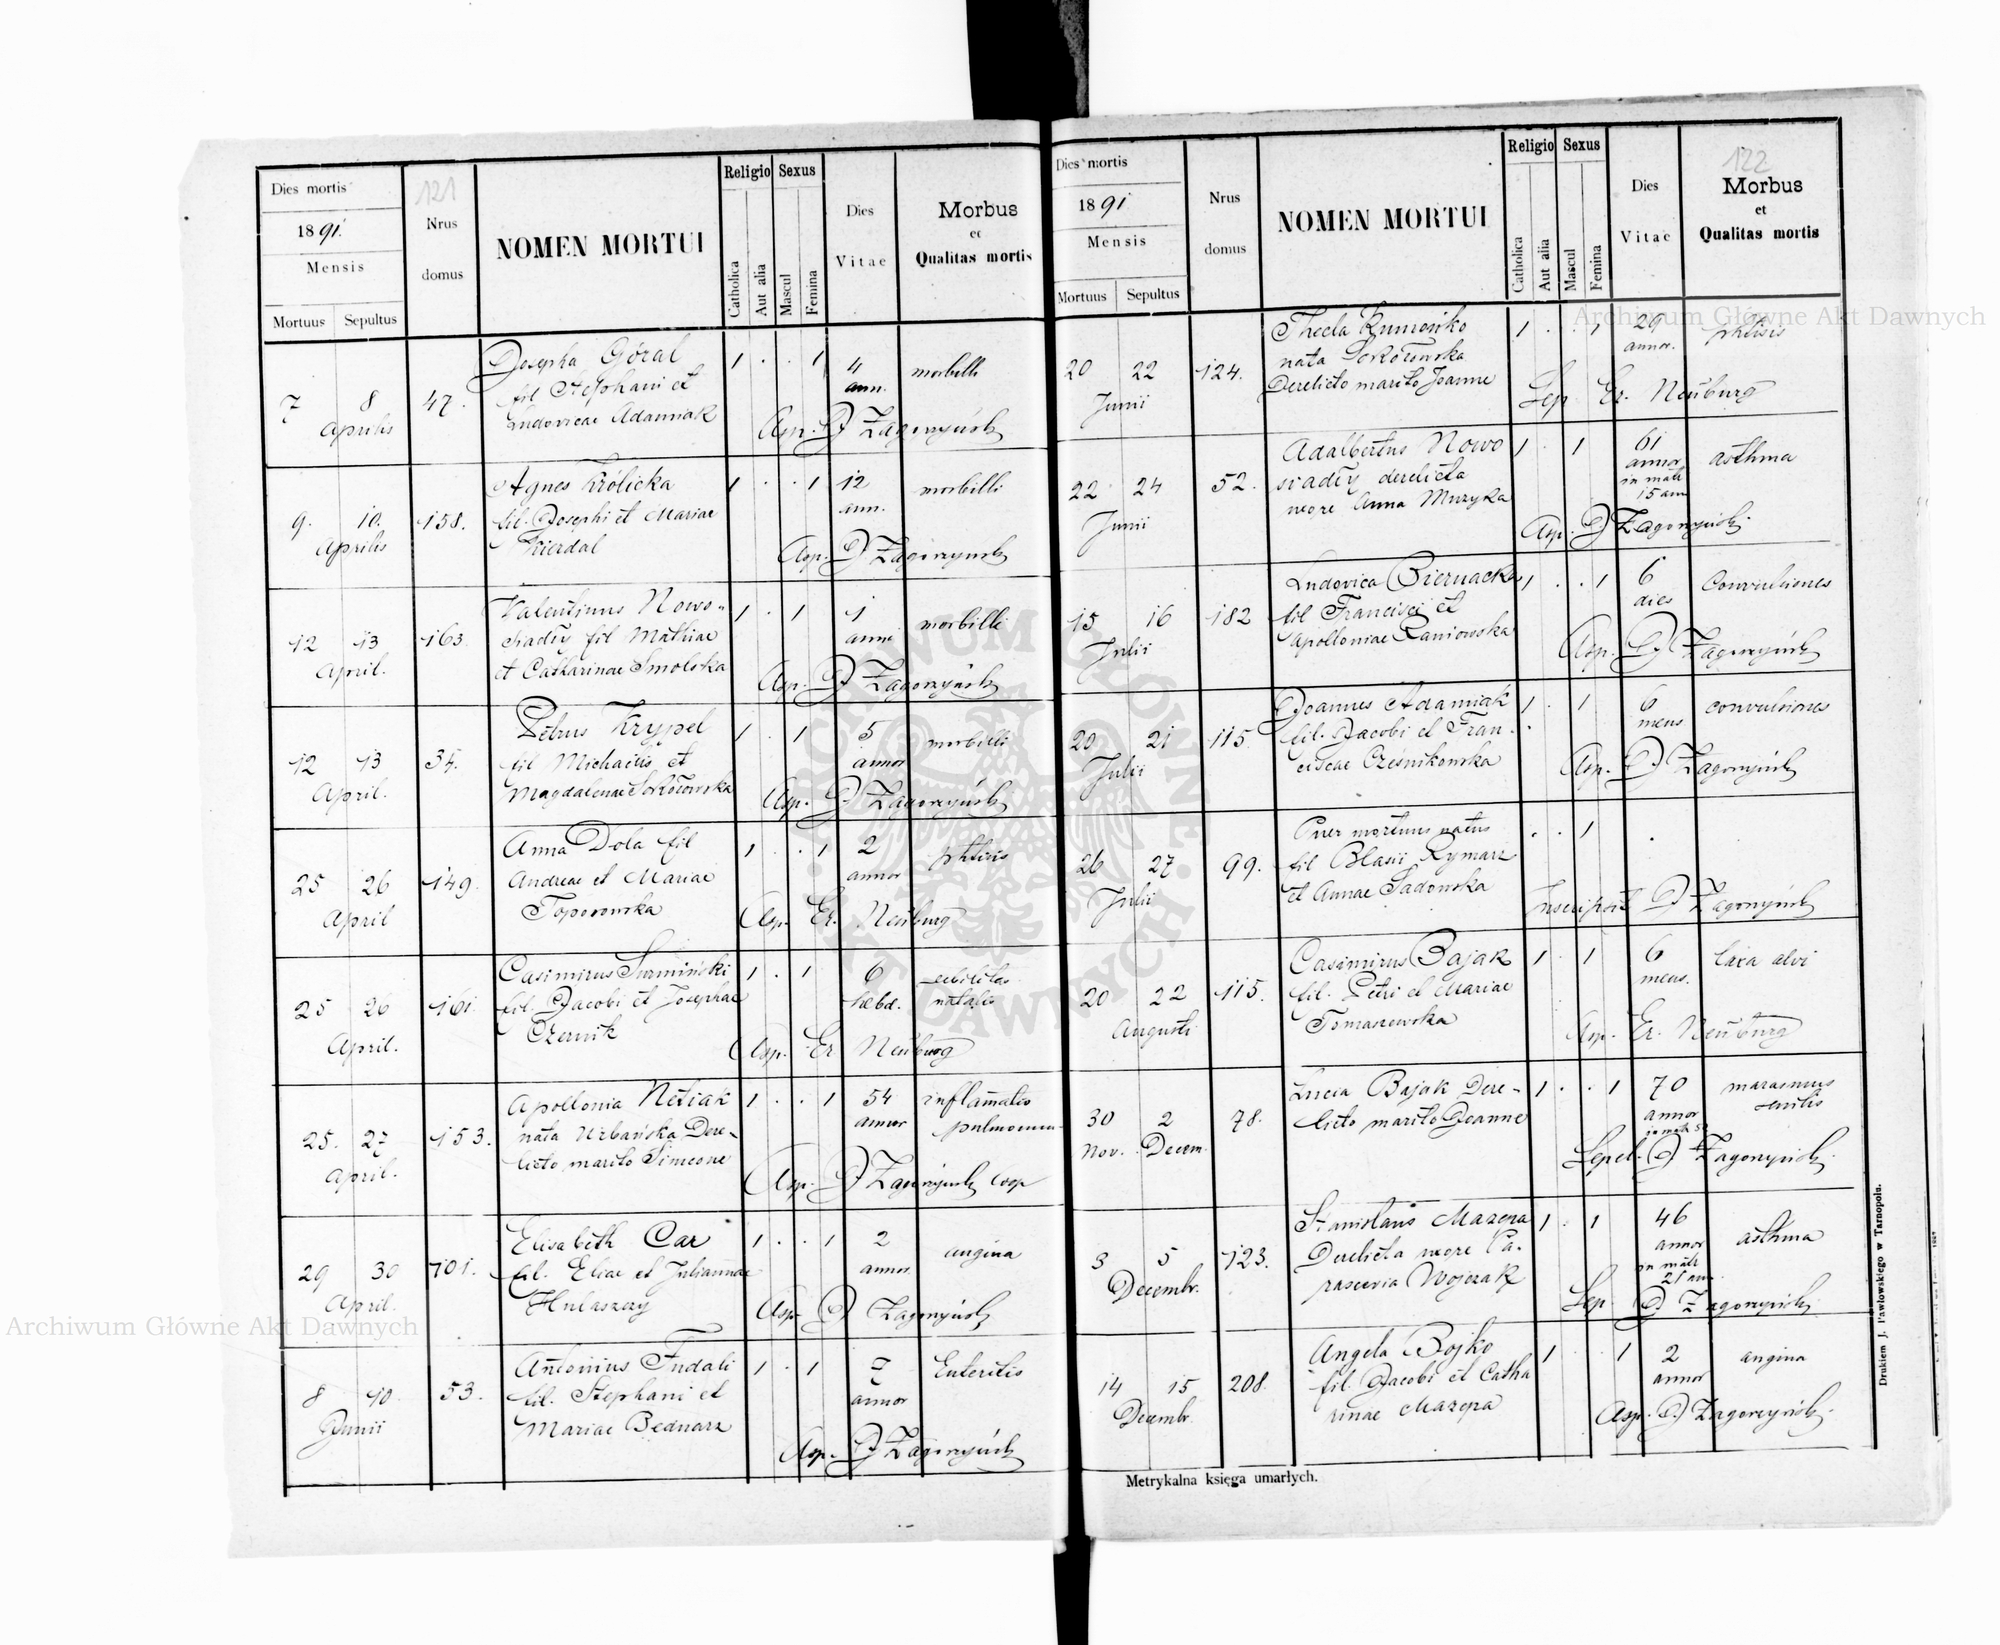 Archiwum Główne Akt Dawnych
121
Dies mortis
1891.
Mensis
Mortuus Sepultus
Nrus
domus
NOMEN MORTUI
Religio Sexus
Catholica
Aut alia
Mascul
Femina
Dies
Vitae
Morbus
et
Qualitas mortis
7 8
Aprilis
47.
Josepha Góral
fil Stephani et
Ludovicae Adamiak
1 . . 1
4
ann.
morbilli
Asp. D Zagorzyński
9. 10.
Aprilis
158.
Agnes Królicka
fil. Josephi et Mariae
Kierdal
1 . . 1
12
ann.
morbilli
Asp. D Zagorzyński
12 13
April.
163.
Valentinus Nowo-
siadły fil Mathiae
et Catharinae Smolska
1 . 1
1
anni
morbilli
Asp. D Zagorzyński
12 13
April.
34.
Petrus Krypel
fil Michaelis et
Magdalenae Sokołowska
1 . 1
5
annor
morbilli
Asp. D Zagorzyński
25 26
April
149.
Anna Dola fil
Andreae et Mariae
Toporowska
1 . . 1
2
annor
phtisis
Asp. Er. Neüburg
25 26
April.
161
Casimirus Surmiński
fil. Jacobi et Josephae
Czernik
1 . 1
6
hebd.
debilitas
natalis
Asp. Er Neüburg
25. 27
April.
153.
Apollonia Netiak
nata Urbańska Dere-
licto marito Simeone
1 . . 1
54
annor
inflam̄atio
pulmonum
Asp. D Zagorzyński Coop
29 30
April.
101.
Elisabeth Car
fil. Eliae et Juliannae
Hulaszczy
1 . . 1
2
annor
angina
Asp. D Zagorzyński
8 10.
Junii
53.
Antonius Fudali
fil. Stephani et
Mariae Bednarz
1 . 1
7
annor
Enteritis
Asp. D Zagorzyński
122
Dies mortis
1891
Mensis
Mortuus Sepultus
Nrus
domus
NOMEN MORTUI
Religio Sexus
Catholica
Aut alia
Mascul
Femina
Dies
Vitae
Morbus
et
Qualitas mortis
Archiwum Główne Akt Dawnych
20 22
Junii
124.
Thecla
nata Sokołowska
Derelicto marito Joanne
1 . . 1
29
annor.
phtisis
Sep Er. Neüburg
22 24
Junii
52.
Adalbertus Nowo
siadły derelicta
uxore Anna Muzyka
1 . 1
61
annor
in matr
15 ann
asthma
Asp. D Zagorzyński
15 16
Julii
182
Ludovica Biernacka
fil Francisci et
Apolloniae Raniowska
1 . . 1
6
dies
Convulsiones
Asp. D Zagorzyński
20 21
Julii
115.
Joannes Adamiak
fil. Jacobi et Fran-
ciscae Cześnikowska
1 . 1
6
mens
convulsiones
Asp. D Zagorzyński
26 27
Julii
99.
Puer mortuus natus
fil Blasii Rymarz
et Annae Sadowska
. . 1
.
Inscripsit D Zagorzyński
20 22
Augusti
115.
Casimirus Bajak
fil. Petri et Mariae
Tomaszewska
1 . 1
6
mens.
laxa alvi
Asp. Er. Neüburg
30 2
Nov. Decem.
78.
Lucia Bajak Dere-
licto marito Joanne
1 . . 1
70
annor
marasmus
senilis
Sepel. D Zagorzyński
3 5
Decembr.
123.
Stanislaus Mazepa
Derelicta uxore Pa-
rascevia Wojczak
1 . 1
46
annor
in matr
21 an.
asthma
Sep D Zagorzyński
14 15
Decembr
208.
Angela Bojko
fil. Jacobi et Catha
rinae Mazepa
1 . 1
2
annor
angina
Asp. D. Zagorzyński
Metrykalna księga umarłych.
Drukiem J. Pawłowskiego w Tarnopolu.
ARCHIWUM GŁÓWNE
AKT DAWNYCH